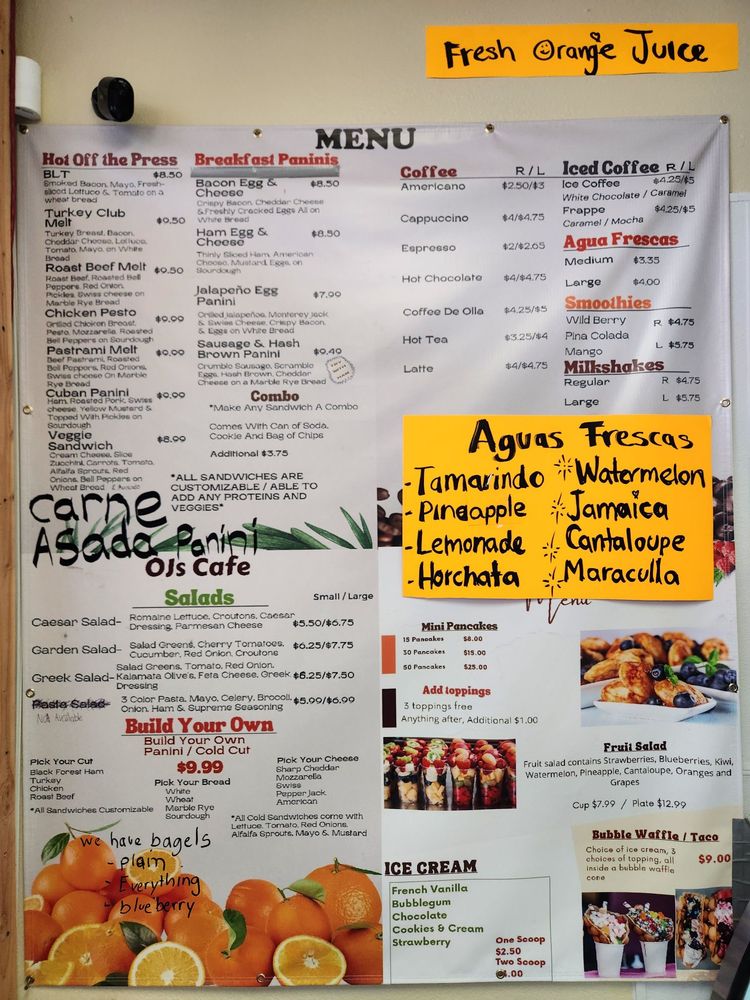 Fresh Orange Juice
MENU
Hot Off the Press
BLT $8.50
Smoked Bacon, Mayo, Fresh-
sliced Lettuce & Tomato on a
wheat bread
Turkey Club
Melt $9.50
Turkey Breast, Bacon,
Cheddar Cheese, Lettuce,
Tomato, Mayo, on White
Bread
Roast Beef Melt $9.50
Roast Beef, Roasted Bell
Peppers, Red Onion,
Pickles, Swiss cheese on
Marble Rye Bread
Chicken Pesto $9.99
Grilled Chicken Breast,
Pesto, Mozzarella, Roasted
Bell Peppers on Sourdough
Pastrami Melt $9.99
Beef Pastrami, Roasted
Bell Peppers, Red Onions,
Swiss cheese On Marble
Rye Bread
Cuban Panini $9.99
Ham, Roasted Pork, Swiss
cheese, Yellow Mustard &
Topped With Pickles on
Sourdough
Veggie
Sandwich $8.99
Cream Cheese, Slice
Zucchini, Carrots, Tomato,
Alfalfa Sprouts, Red
Onions, Bell Peppers on
Wheat Bread
Carne
Asada Panini
Breakfast Paninis
Bacon Egg & $8.50
Cheese
Crispy Bacon, Cheddar Cheese
& Freshly Cracked Eggs All on
White Bread
Ham Egg & $8.50
Cheese
Thinly Sliced Ham, American
Cheese, Mustard, Eggs, on
Sourdough
Jalapeño Egg $7.99
Panini
Grilled Jalapeños, Monterey Jack
& Swiss Cheese, Crispy Bacon,
& Eggs on White Bread
Sausage & Hash
Brown Panini $9.49
Crumble Sausage, Scramble
Eggs, Hash Brown, Cheddar
Cheese on a Marble Rye Bread
Combo
*Make Any Sandwich A Combo
Comes With Can of Soda,
Cookie And Bag of Chips
Additional $3.75
*ALL SANDWICHES ARE
CUSTOMIZABLE / ABLE TO
ADD ANY PROTEINS AND
VEGGIES*
Coffee R / L
Americano $2.50/$3
Cappuccino $4/$4.75
Espresso $2/$2.65
Hot Chocolate $4/$4.75
Coffee De Olla $4.25/$5
Hot Tea $3.25/$4
Latte $4/$4.75
Iced Coffee R / L
Ice Coffee $4.25/$5
White Chocolate / Caramel
Frappe $4.25/$5
Caramel / Mocha
Agua Frescas
Medium $3.35
Large $4.00
Smoothies
Wild Berry R $4.75
Pina Colada
Mango L $5.75
Milkshakes
Regular R $4.75
Large L $5.75
Aguas Frescas
- Tamarindo
- Pineapple
- Lemonade
- Horchata
Watermelon
Jamaica
Cantaloupe
Maraculla
OJs Cafe
Salads Small / Large
Caesar Salad- Romaine Lettuce, Croutons, Caesar $5.50/$6.75
Dressing, Parmesan Cheese
Garden Salad- Salad Greens, Cherry Tomatoes, $6.25/$7.75
Cucumber, Red Onion, Croutons
Greek Salad- Salad Greens, Tomato, Red Onion,
Kalamata Olive's, Feta Cheese, Greek $6.25/$7.50
Dressing
Pasta Salad- 3 Color Pasta, Mayo, Celery, Brocoli, $5.99/$6.99
Onion, Ham & Supreme Seasoning
Not Available
Build Your Own
Build Your Own
Panini / Cold Cut
$9.99
Pick Your Cut
Black Forest Ham
Turkey
Chicken
Roast Beef
*All Sandwiches Customizable
Pick Your Bread
White
Wheat
Marble Rye
Sourdough
Pick Your Cheese
Sharp Cheddar
Mozzarella
Swiss
Pepper Jack
American
*All Cold Sandwiches come with
Lettuce, Tomato, Red Onions,
Alfalfa Sprouts, Mayo & Mustard
we have bagels
- plain
- Everything
- blueberry
Menu
Mini Pancakes
15 Pancakes $8.00
30 Pancakes $15.00
50 Pancakes $25.00
Add toppings
3 toppings free
Anything after, Additional $1.00
Fruit Salad
Fruit salad contains Strawberries, Blueberries, Kiwi,
Watermelon, Pineapple, Cantaloupe, Oranges and
Grapes
Cup $7.99 / Plate $12.99
Bubble Waffle / Taco
Choice of ice cream, 3
choices of topping, all
inside a bubble waffle
cone
$9.00
ICE CREAM
French Vanilla
Bubblegum
Chocolate
Cookies & Cream
Strawberry
One Scoop
$2.50
Two Scoop